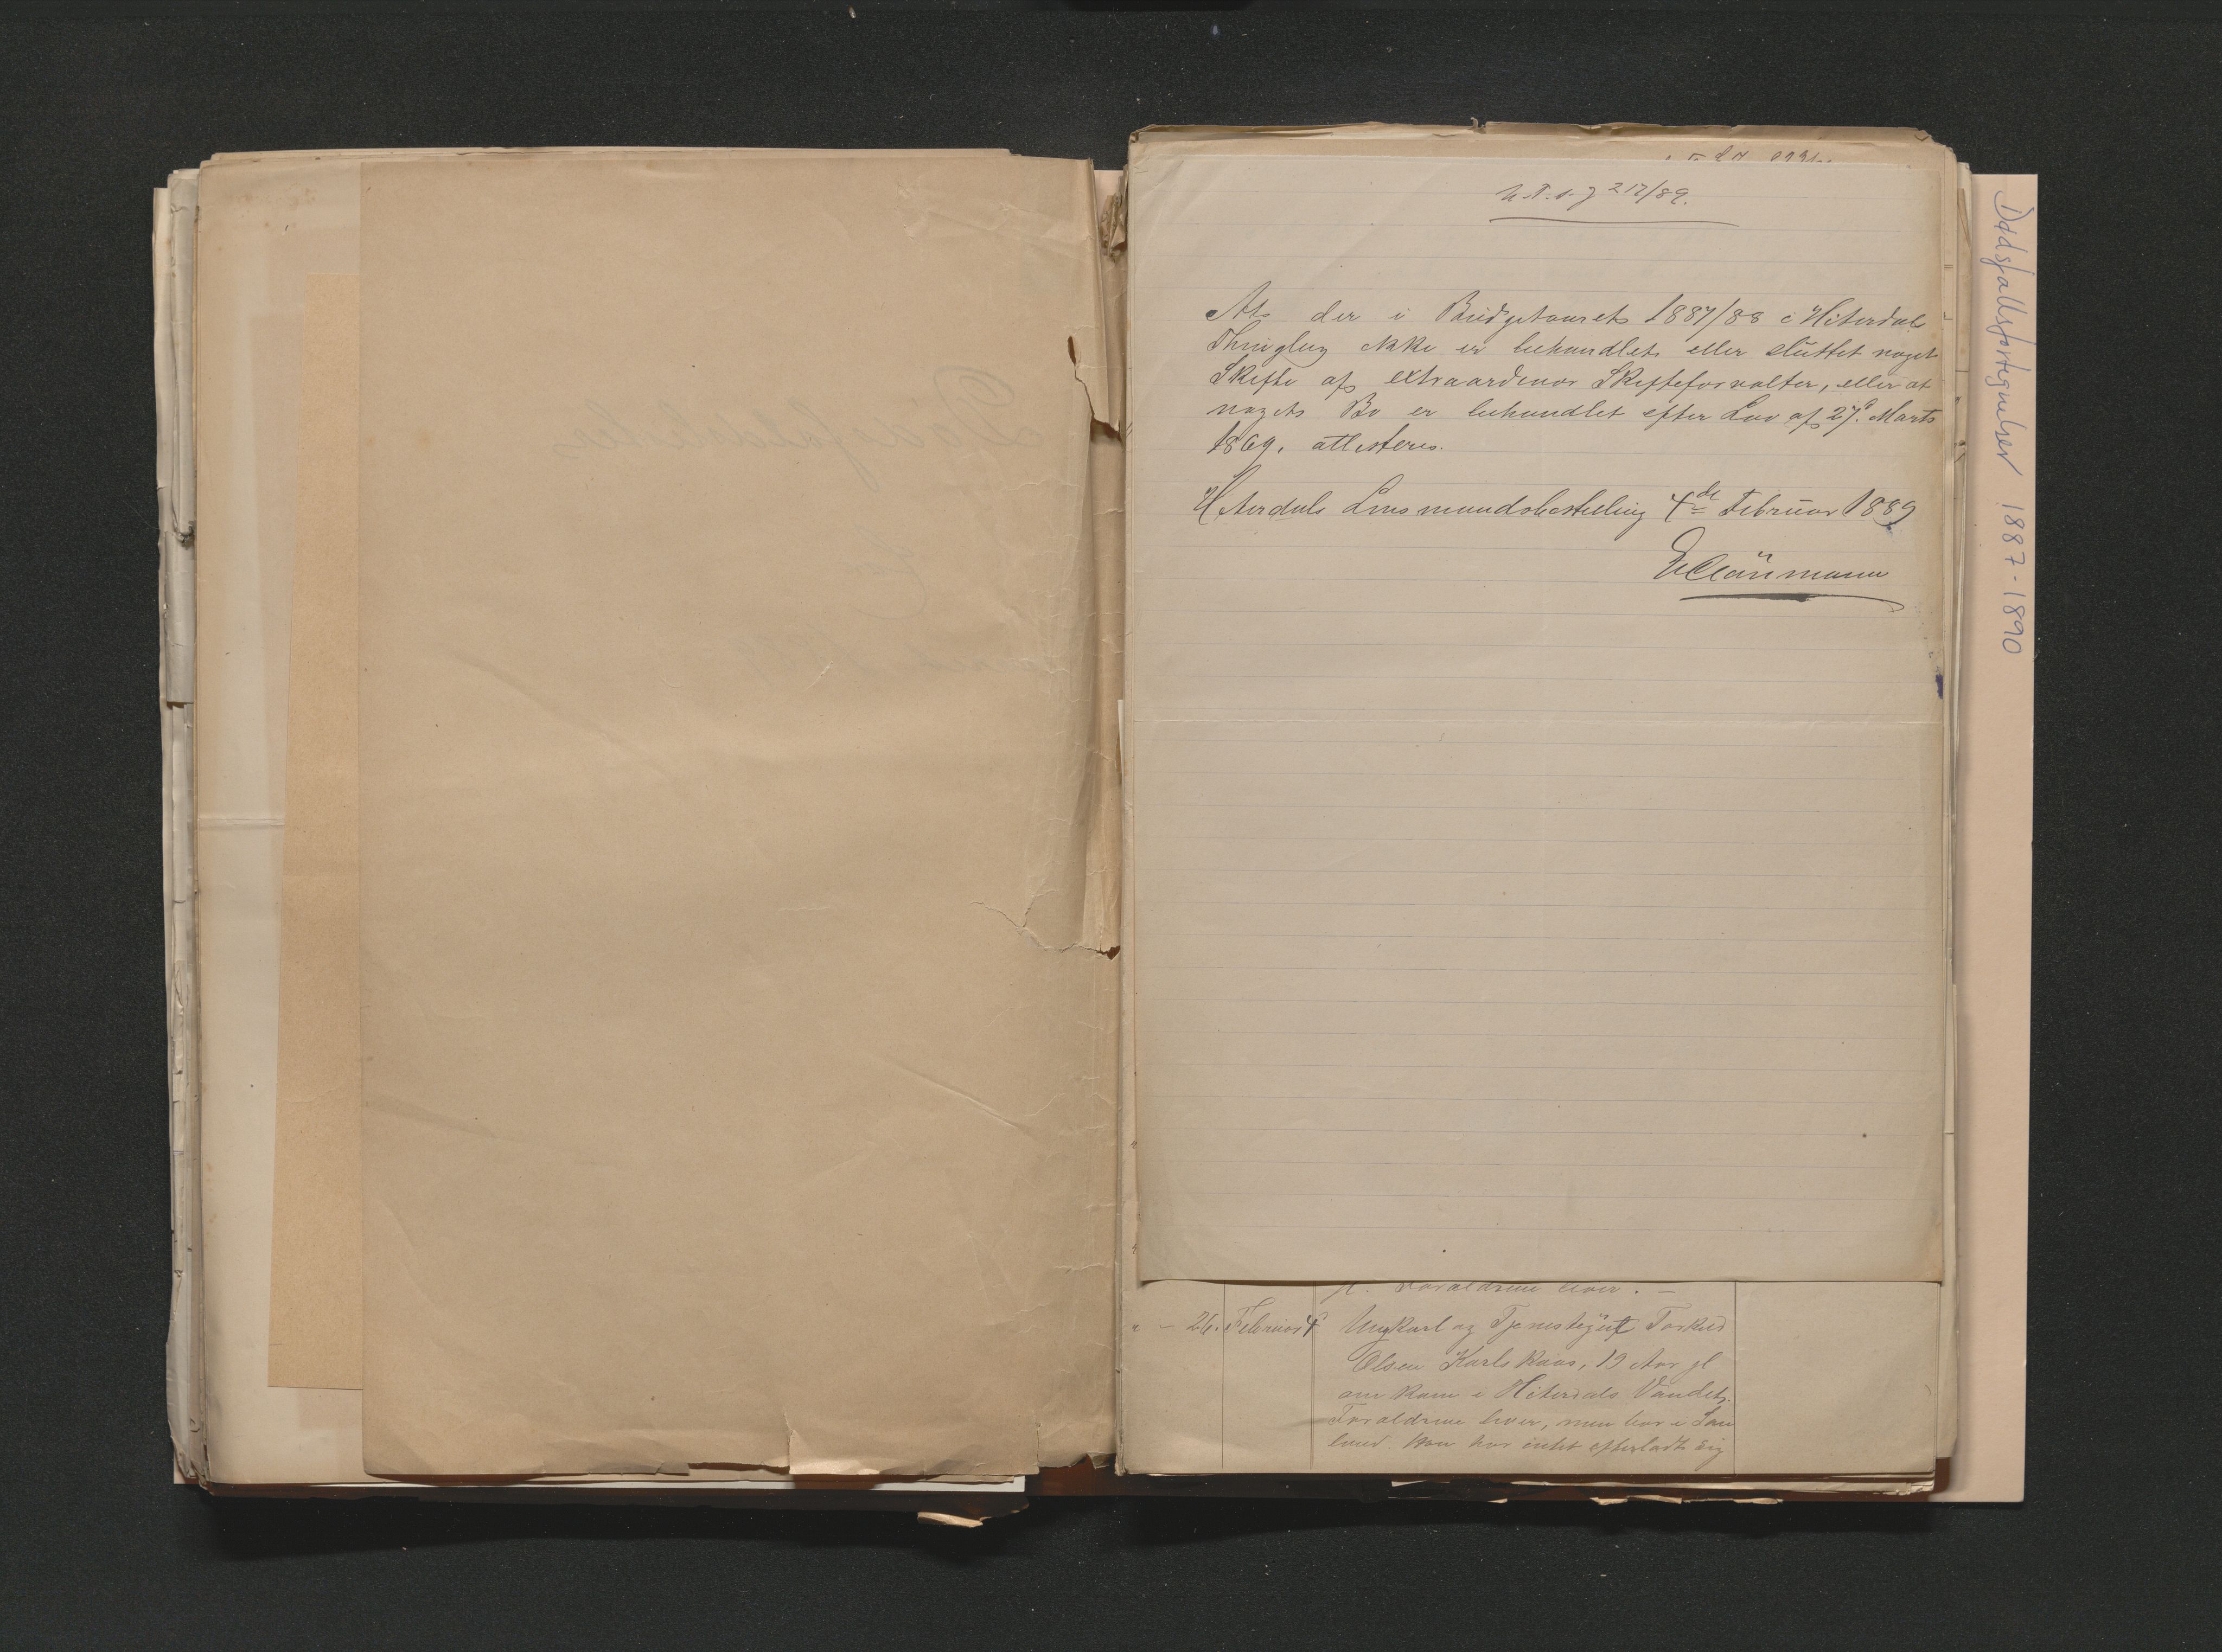 N.T.s. J 217/89.
At der i Budgetaaret 1887/88 i Hiterdals
Thinglag ikke er behandlet eller sluttet noget
Skifte af extraordinær Skifteforvalter, eller at
noget Bo er behandlet efter Lov af 27d. Marts
1869, attesteres.
Hiterdals Lensmandsbestilling 4de Februar 1889
Forældrene lever. —
" - 26. Februar 4 Ungkarl og Tjenestegut Torkild
Olsen Karlskaas, 19 Aar gl
om kom i Hiterdals Vandet.
Forældrene lever, men bor i Sau
land. Han har intet efterladt sig
Dødsfallsfortegnelser 1887-1890